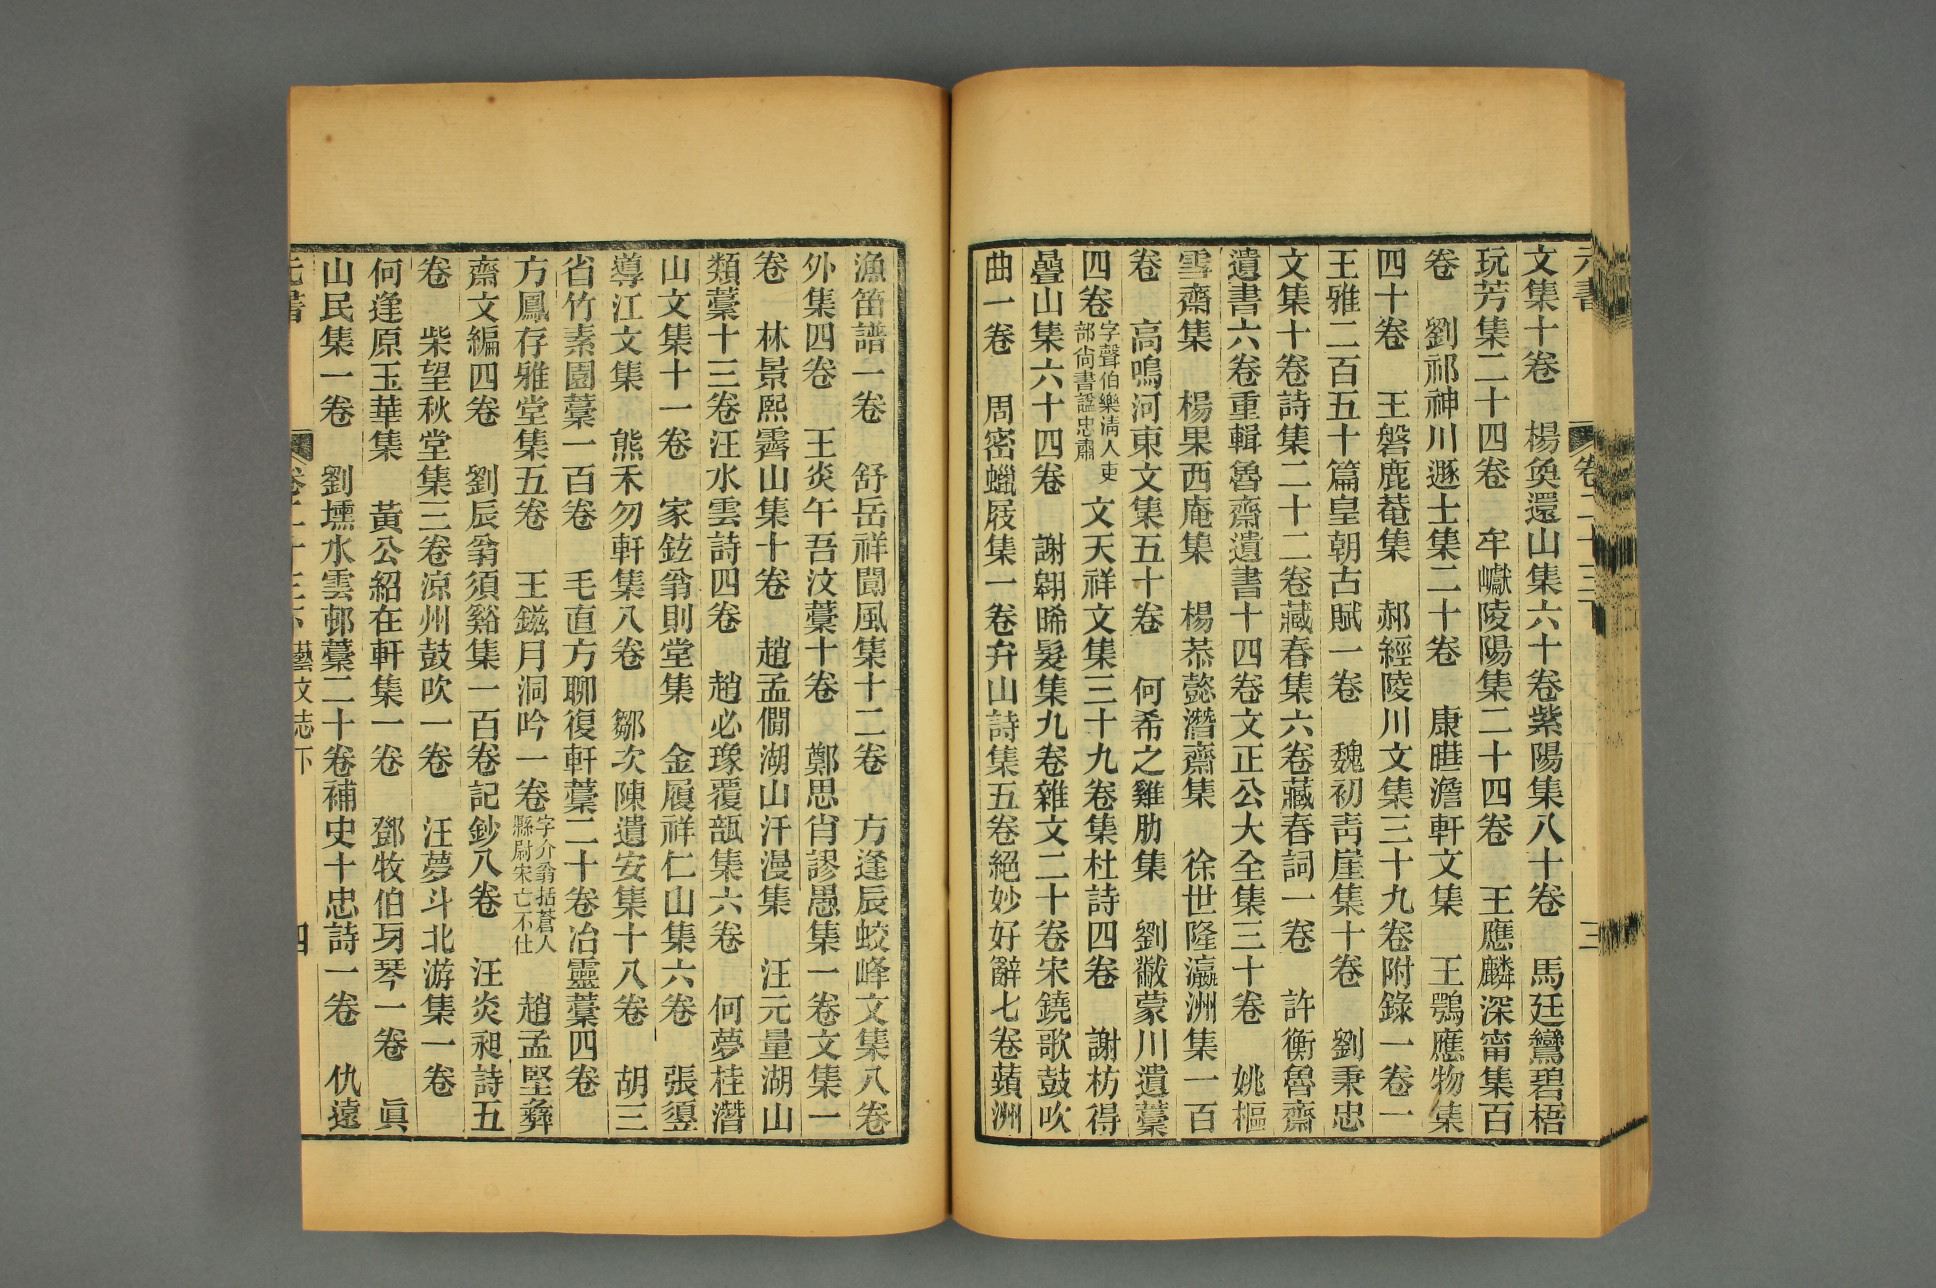 元書 卷二十三 三
文集十卷　楊奐還山集六十卷紫陽集八十卷　馬廷鸞碧梧
玩芳集二十四卷　牟巘陵陽集二十四卷　王應麟深甯集百
卷　劉祁神川遯士集二十卷　康曄澹軒文集　王鶚應物集
四十卷　王磐鹿菴集　郝經陵川文集三十九卷附錄一卷一
王雅二百五十篇皇朝古賦一卷　魏初靑崖集十卷　劉秉忠
文集十卷詩集二十二卷藏春集六卷藏春詞一卷　許衡魯齋
遺書六卷重輯魯齋遺書十四卷文正公大全集三十卷　姚樞
雪齋集　楊果西庵集　楊恭懿潛齋集　徐世隆瀛洲集一百
卷　高鳴河東文集五十卷　何希之雞肋集　劉黻蒙川遺藁
四卷字聲伯樂淸人吏部尙書諡忠肅　文天祥文集三十九卷集杜詩四卷　謝枋得
疊山集六十四卷　謝翱晞髮集九卷雜文二十卷宋鐃歌鼓吹
曲一卷　周密蠟屐集一卷弁山詩集五卷絕妙好辭七卷蘋洲
漁笛譜一卷　舒岳祥閬風集十二卷　方逢辰蛟峰文集八卷
外集四卷　王炎午吾汶藁十卷　鄭思肖謬愚集一卷文集一
卷　林景熙霽山集十卷　趙孟僩湖山汗漫集　汪元量湖山
類藁十三卷汪水雲詩四卷　趙必𤩪覆瓿集六卷　何夢桂潛
山文集十一卷　家鉉翁則堂集　金履祥仁山集六卷　張𥪡
導江文集　熊禾勿軒集八卷　鄒次陳遺安集十八卷　胡三
省竹素園藁一百卷　毛直方聊復軒藁二十卷冶靈藁四卷
方鳳存雅堂集五卷　王鎡月洞吟一卷字介翁括蒼人縣尉宋亡不仕　趙孟堅彝
齋文編四卷　劉辰翁須谿集一百卷記鈔八卷　汪炎昶詩五
卷　柴望秋堂集三卷涼州鼓吹一卷　汪夢斗北游集一卷
何逢原玉華集　黃公紹在軒集一卷　鄧牧伯牙琴一卷　眞
山民集一卷　劉壎水雲邨藁二十卷補史十忠詩一卷　仇遠
元書 卷二十三下 藝文志下 四